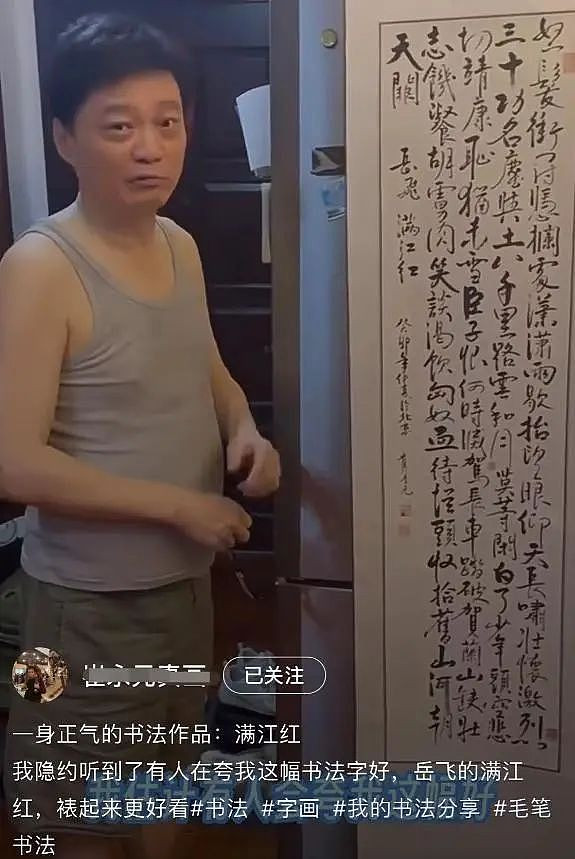 怒髮衝冠憑欄處瀟瀟雨歇抬望眼仰天長嘯壯懷激烈
三十功名塵與土八千里路雲和月莫等閒白了少年頭空悲
切靖康恥猶未雪臣子恨何時滅駕長車踏破賀蘭山缺壯
志饑餐胡虜肉笑談渴飲匈奴血待從頭收拾舊山河朝
天闕 岳飛 满江红
癸卯年 北京
已关注
一身正气的书法作品：满江红
我隐约听到了有人在夸我这幅书法字好，岳飞的满江
红，裱起来更好看#书法 #字画 #我的书法分享 #毛笔
书法